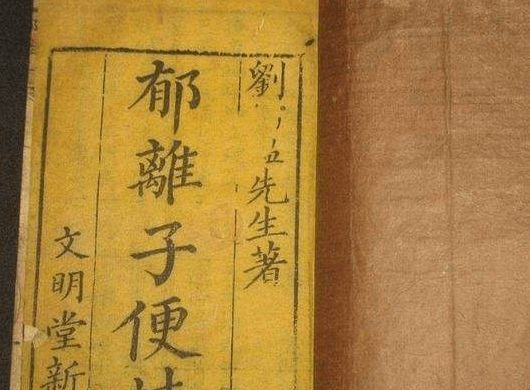 劉先生著
郁離子便
文明堂新